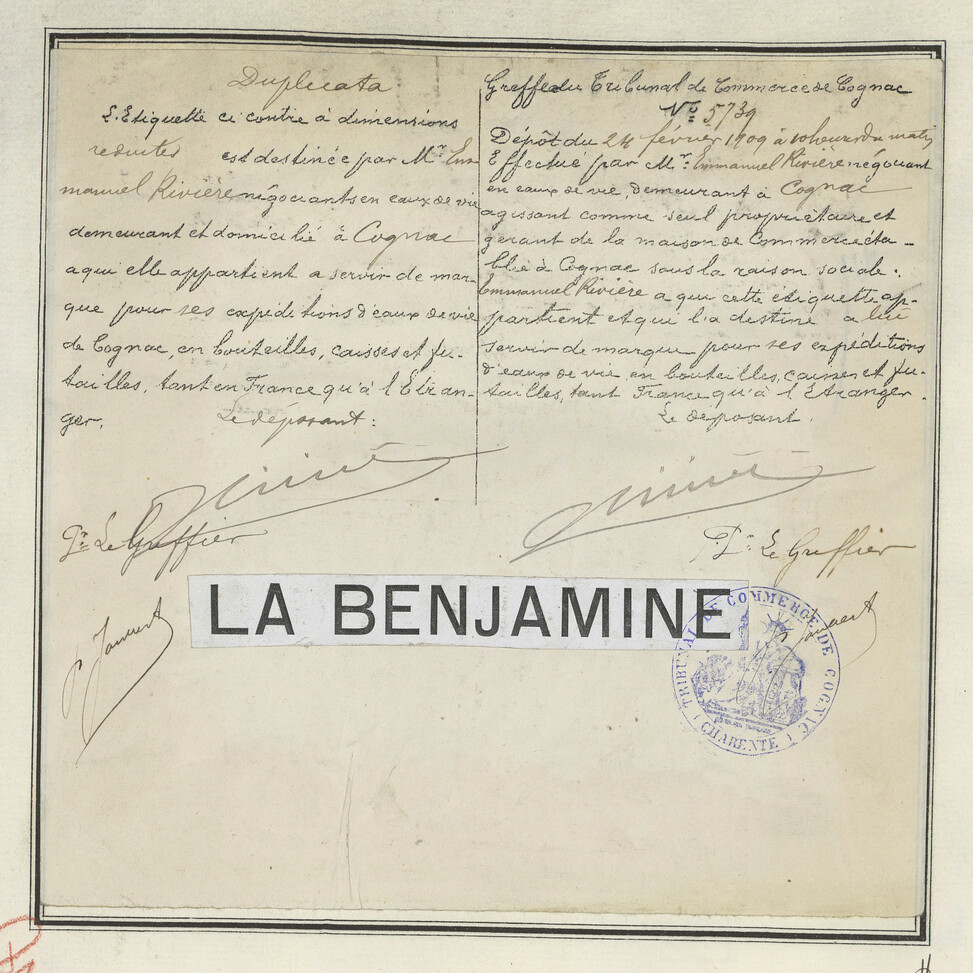 Duplicata.
L'Etiquette ci contre à dimensions
reduites est destinée par Mr. Em
manuel Rivière négociants en eaux de vie
demeurant et domicilié à Cognac
a qui elle appartient a servir de mar-
que pour ses expéditions d'eaux de vie
de Cognac, en bouteilles, caisses et fu-
tailles, tant en France qu'à l'Etran-
ger.
Le deposant:
Pr. Le Greffier
Greffe du Tribunal de Commerce de Cognac
No 5739
Dépôt du 24 février 1909 à 10 heures du matin
Effectué par Mr. Emmanuel Rivière négociant
en eaux de vie, demeurant à Cognac
agissant comme seul propriétaire et
gérant de la maison de Commerce éta-
blie à Cognac sous la raison sociale.
Emmanuel Rivière a qui cette etiquette ap-
partient et qui l'a destiné a lui
servir de marque pour ses expéditions
d'eaux de vie en bouteilles, caisses et fu-
tailles, tant France qu'à l'Etranger.
Le deposant.
Pr. Le Greffier
LA BENJAMINE
TRIBUNAL DE COMMERCE DE COGNAC
(CHARENTE)